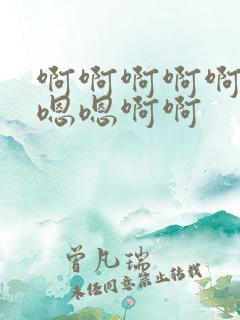 啊啊啊啊啊
嗯嗯啊啊
曾凡瑞
未经同意禁止转载